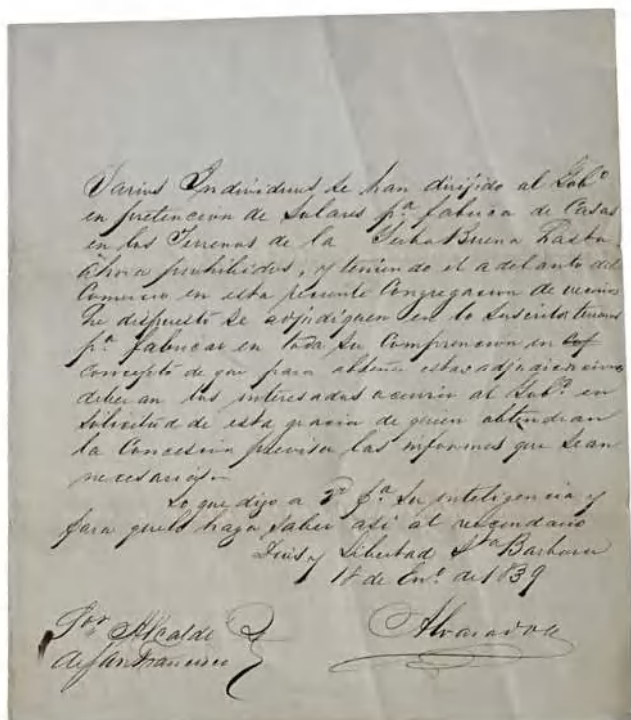 Varios Individuos se han dirijido al Gobº
en pretencion de Solares pª fabrica de Casas
en los Terrenos de la Yerba Buena hasta
ahora prohibidos, y teniendo el adelanto del
Comercio en esta reciente Congregacion de vecinos
he dispuesto se adjudiquen en lo suscrito terrenos
pª fabricar en toda su Comprencion en
concepto de que para obtener estas adjudicaciones
deberan los interesados ocurrir al Gobº en
Solicitud de esta gracia de quien obtendran
la Concesion previos los informes que sean
necesarios.
Lo que digo a pª su inteligencia y
para que lo haga saber asi al vecindario
Dios y Libertad Sta Barbara
18 de Enº de 1839
Alvarado
Sor Alcalde
de San Francisco